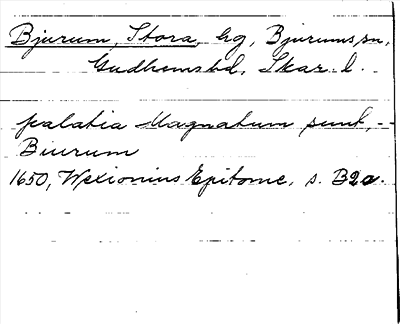 Bjurum, Stora, hg, Bjurums sn,
Gudhems hd, Skar. l.
palatia Magnatum sunt, --
Biurum
1650, Wexionius Epitome, s. B2a.